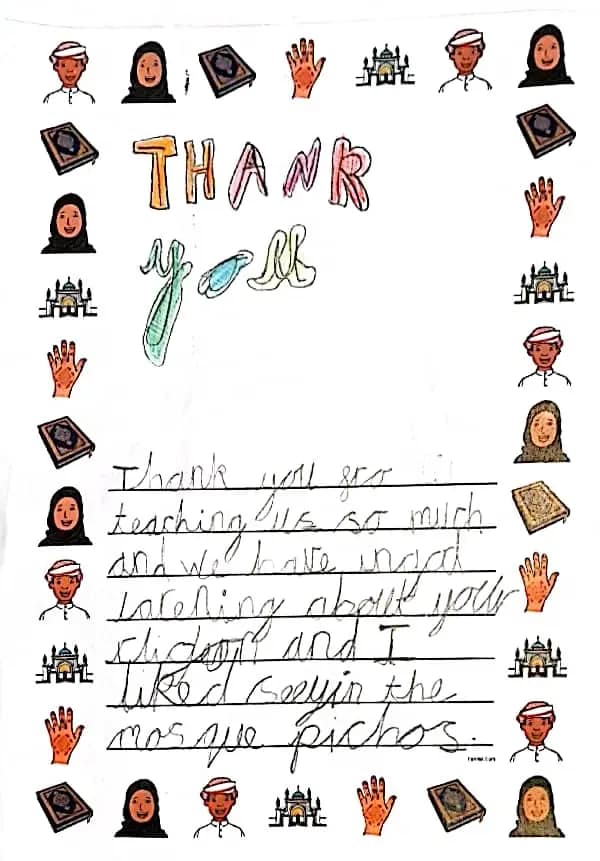 THANK
you
Thank you for
teaching us so much
and we have ingod
larening about your
and I
liked seeyin the
mosque pichos.